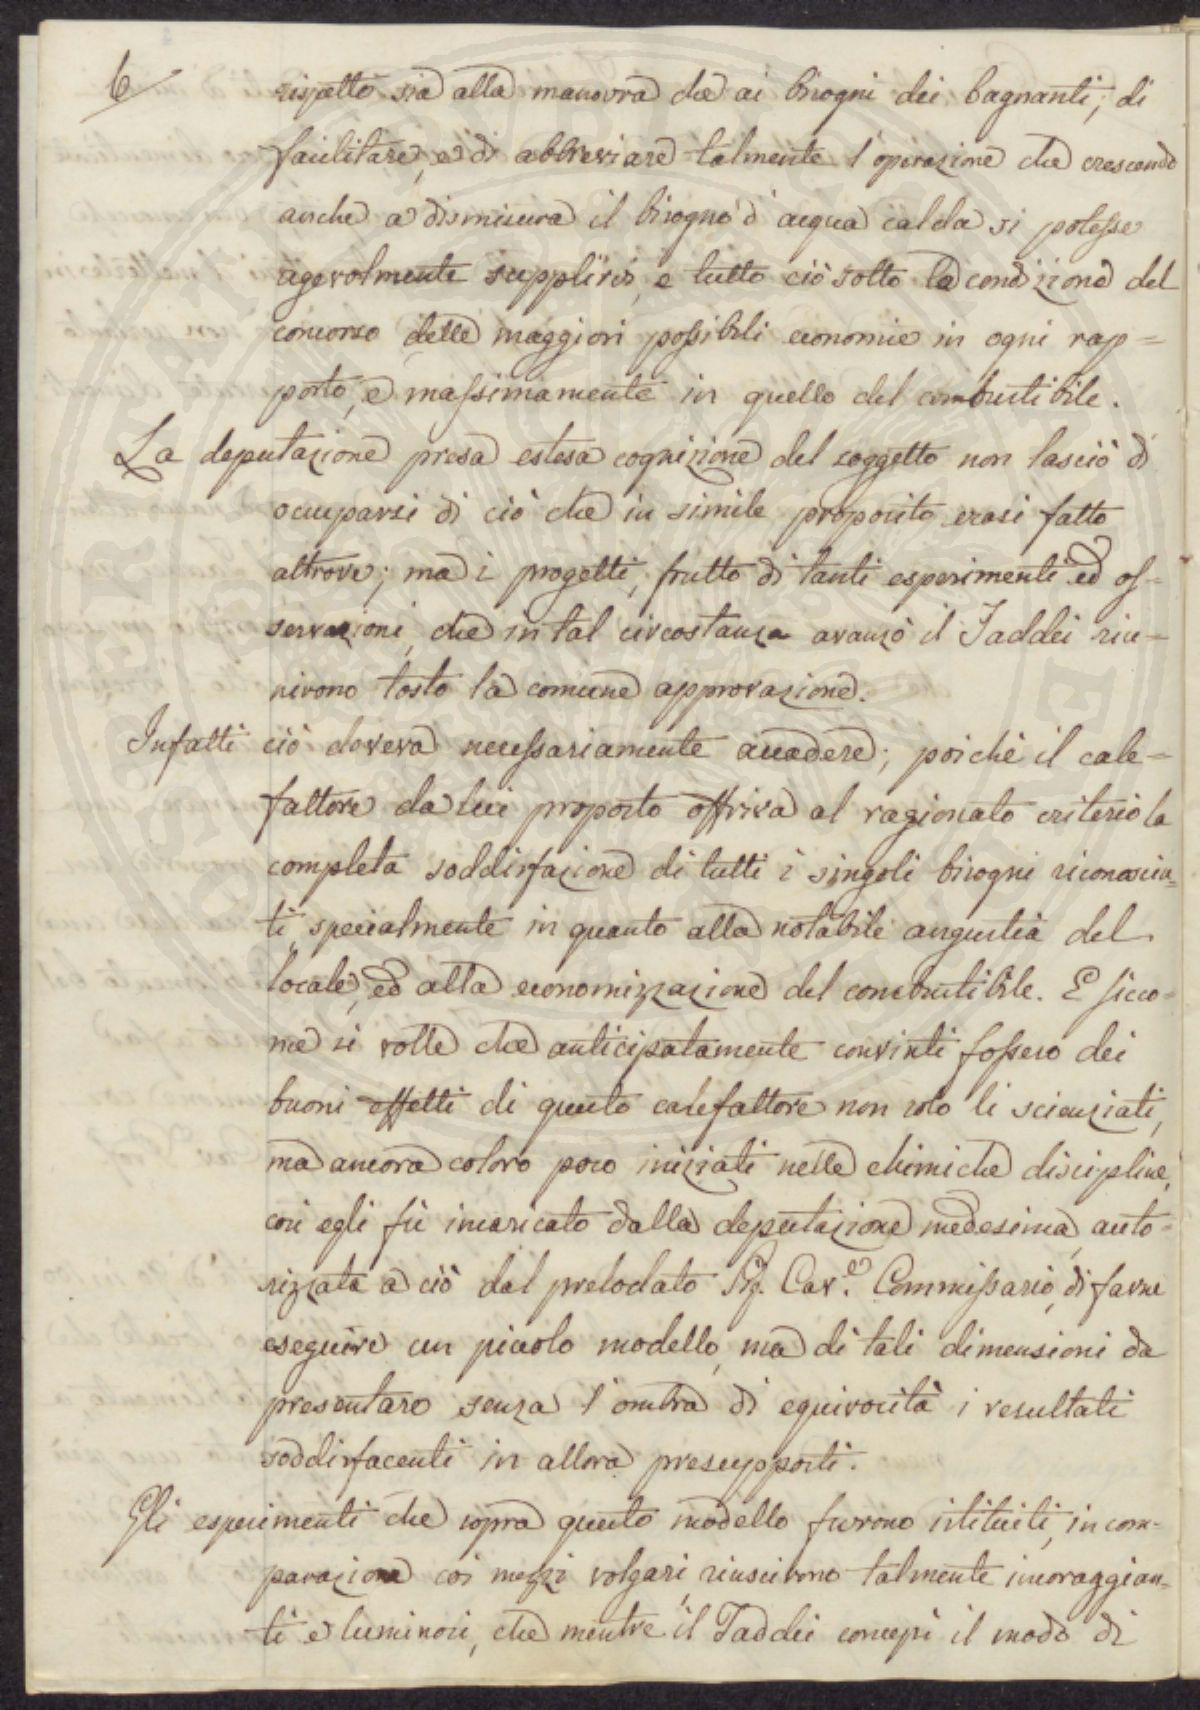 6
rispetto sia alla manovra che ai bisogni dei bagnanti, di
facilitare, e di abbreviare talmente l'operazione che crescendo
anche a dismisura il bisogno d'acqua calda si potesse
agevolmente supplirvi, e tutto ciò sotto la condizione del
concorso delle maggiori possibili economie in ogni rap=
porto, e massimamente in quello del combustibile.
La deputazione presa estesa cognizione del soggetto non lasciò di
occuparsi di ciò che in simile proposito erasi fatto
altrove; ma i progetti, frutto di tanti esperimenti ed os=
servazioni, che in tal circostanza avanzò il Taddei riu=
nirono tosto la comune approvazione.
Infatti ciò doveva necessariamente accadere; poichè il cale=
fattore da lui proposto offriva al ragionato criterio la
completa soddisfazione di tutti i singoli bisogni riconosciu=
ti specialmente in quanto alla notabile angustia del
locale, ed alla economizzazione del combustibile. E sicco=
me si volle che anticipatamente convinti fossero dei
buoni effetti di questo calefattore non solo li scienziati,
ma ancora coloro poco iniziati nelle chimiche discipline,
così egli fù incaricato dalla deputazione medesima, auto=
rizzata a ciò dal prelodato Sig. Cav.e Commissario, di farne
eseguire un piccolo modello, ma di tali dimensioni da
presentare senza l'ombra di equivocità i resultati
soddisfacenti in allora presupposti.
Gli esperimenti che sopra questo modello furono istituiti, in com=
parazione coi mezzi volgari, riuscirono talmente incoraggian=
ti e luminosi, che mentre il Taddei concepì il modo di